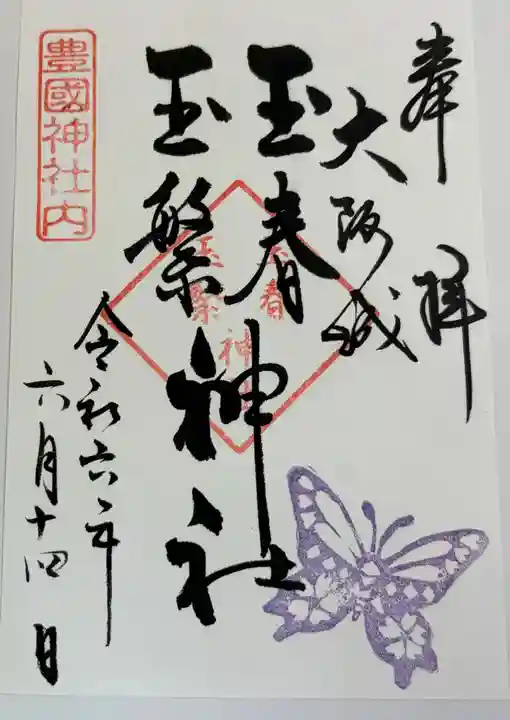 奉拝
大阪城
玉春神社
玉繁神社
玉春
玉繁
神社
令和六年
六月十四日
豊國神社内